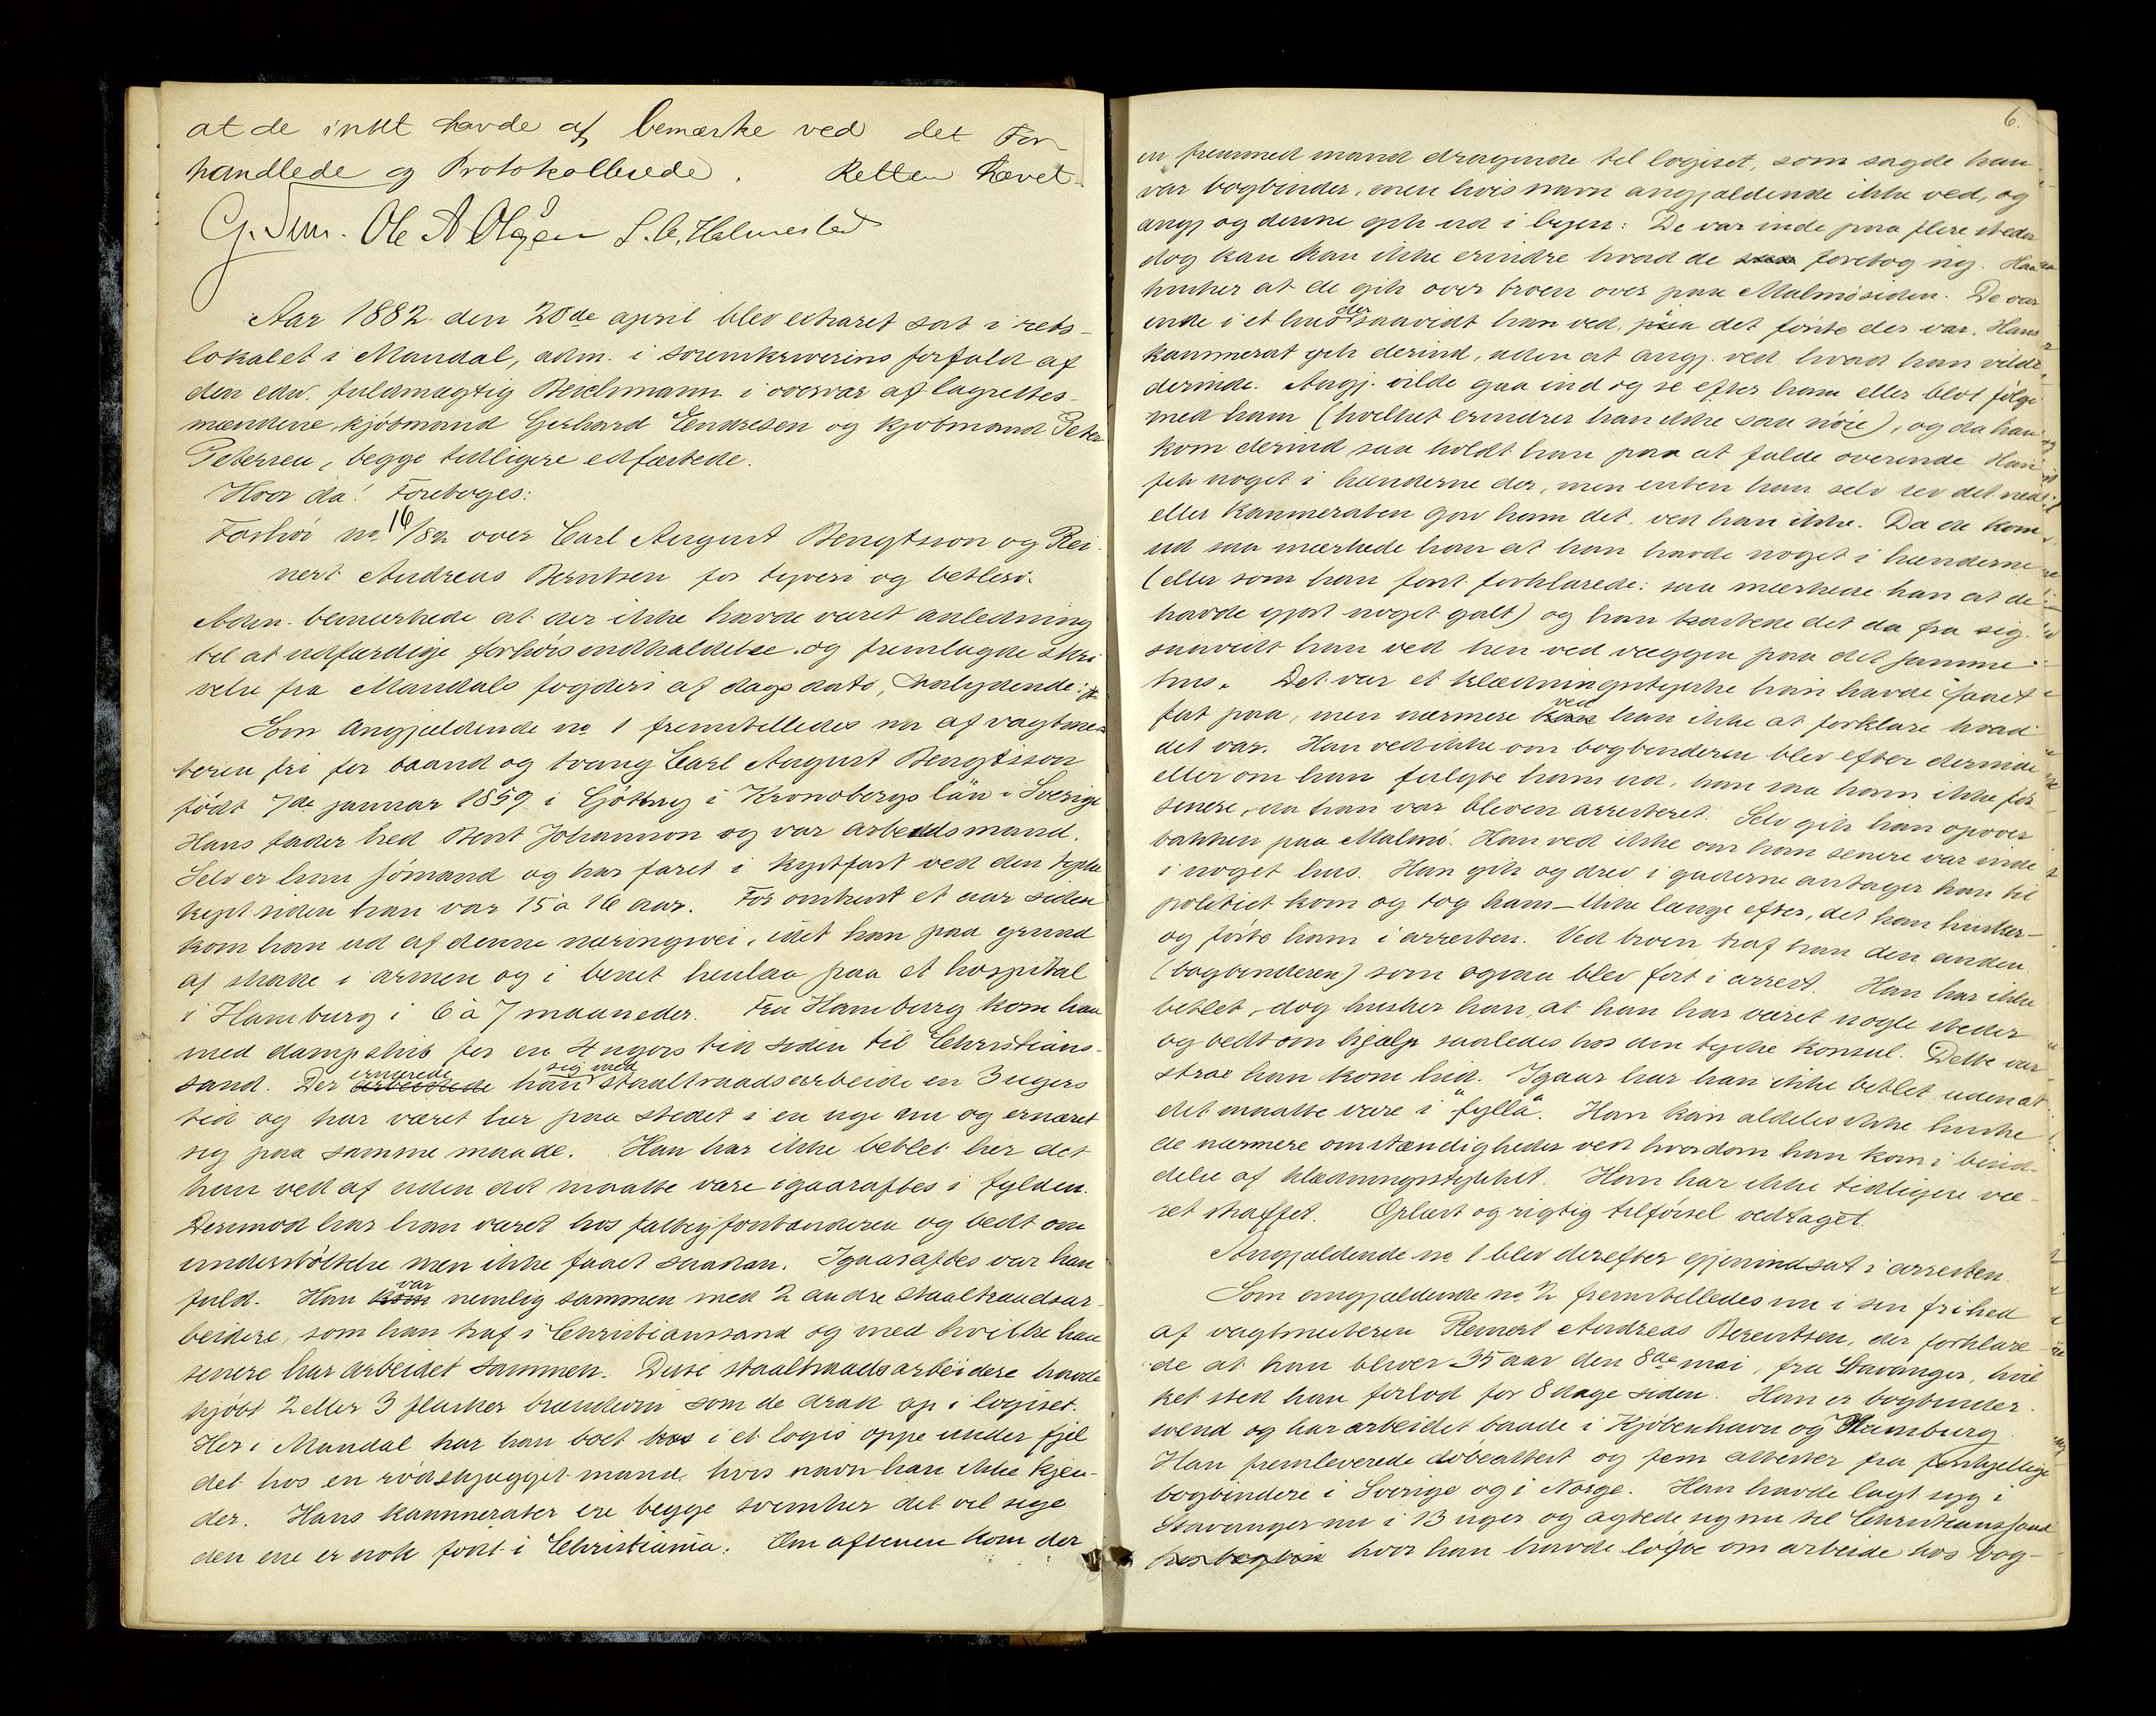 at de intet havde at bemærke ved det For
handlede og Protokollerede. Retten hævet.
Ole A Olsen S. C. Halmrasted
Aar 1882 den 20de april blev extraret sat i rets-
lokalet i Mandal, adm. i sorenskriverens forfald af
den edsv. fuldmægtig Beichmann i overvær af lagrettes-
mændene, kjøbmand Gerhard Eendresen og kjøbmand Peter
Petersen, begge tidligere edfæstede.
Hvor da! Foretoges:
Forhør no. 16/82 over Carl August Bengtsson og Rei-
nert Andreas Berntsen for tyveri og betleri.
Adm. bemærkede at der ikke havde været anledning
til at udfærdige forhørsindkaldelse og fremlagde skri
velse fra Mandals fogderi af dags dato, saalydende:
Som Angjældende no 1 fremstilledes nu af vagtme-
steren fri for baand og tvang Carl August Bengtsson
født 7de januar 1859 i Kronobergs län i Sverige
Hans fader hed Bent Johannson og var arbeidsmand.
Selv er han sømand og har faret i kystfart ved den tyske
kyst siden han var 15 à 16 aar. For omtrent et aar siden
kom han ud af denne næringsvei, idet han paa grund
af skade i armen og i benet henlaa paa et hospital
i Hamburg i 6 à 7 maaneder. Fra Hamburg kom han
med dampskib for en 4 ugers tid siden til Christians-
sand. Der ernærede han sig med staaltraadsarbeide en 3 ugers
tid og har været her paa stedet i en uge nu og ernæret
sig paa samme maade. Han har ikke betlet her det
han ved af uden det maatte være igaaraftes i fylden.
Derimod har han været hos fattigforstanderen og bedt om
understøttelse men ikke faaet saadan. Igaaraftes var han
fuld. Han var nemlig sammen med 2 andre staaltraadsar-
beidere, som han traf i Christianssand og med hvilke han
senere har arbeidet sammen. Disse staaltraadsarbeidere havde
kjøbt 2 eller 3 flasker brændevin som de drak op i logiset.
Her i Mandal har han boet hos i et logis oppe under fjel
det hos en rødskjægget mand, hvis navn han ikke kjen-
der. Hans kammerater ere begge svensker det vil sige
den ene er nok født i Christiania. Om aftenen kom der
6.
en fremmed mand dragende til logiset, som sagde han
var bogbinder, men hvis navn angjældende ikke ved, og
angj. og denne gik ud i byen: De var inde paa flere steder
dog kan han ikke erindre hvad de foretog sig. Han
husker at de gik over broen over paa Malmøsiden. De var
inde i et hus der saavidt han ved, paa det første der var. Hans
kammerat gik derind, uden at angj. ved hvad han vilde
derinde. Angj. vilde gaa ind og se efter ham eller blot følge
med ham (hvilket erindrer han ikke saa nøie), og da han
kom derind saa holdt han paa at falde overende. Han
fik noget i hænderne der, men enten han selv rev det ned
eller kammeraten gav ham det, ved han ikke. Da de kom
ud saa mærkede han at han havde noget i hænderne
(eller som han først forklarede: saa mærkede han at de
havde gjort noget galt) og han kastede det da fra sig
saavidt han ved hen ved væggen paa det samme
hus. Det var et klædningsstykke han havde faaet
fat paa, men nærmere ved han ikke at forklare hvad
det var. Han ved ikke om bogbinderen blev efter derinde
eller om han fulgte ham ud, han saa ham ikke før
senere, da han var bleven arresteret. Selv gik han opover
bakken paa Malmø. Han ved ikke om han senere var inde
i noget hus. Han gik og drev i gaderne antager han til
politiet kom og tog ham – ikke længe efter, det han husker –
og førte ham i arresten. Ved broen traf han den anden
(bogbinderen) som ogsaa blev ført i arrest. Han har ikke
betlet, dog husker han, at han har været nogle steder
og bedt om hjælp saaledes hos den tyske konsul. Dette var
strax han kom hid. Igaar har han ikke betlet uden at
det maatte være i "fylla". Han kan aldeles ikke huske
de nærmere omstændigheder ved hvordan han kom i besid-
delse af klædningsstykket. Han har ikke tidligere væ-
ret straffet. Oplæst og rigtig tilførsel vedtaget.
Angjældende no 1 blev derefter gjenindsat i arresten.
Som angjældende no 2 fremstilledes nu i sin frihed
af vagtmesteren Reinert Andreas Berentsen, der forklare-
de at han bliver 35 aar den 8de mai, fra Stavanger, hvil
ket sted han forlod for 8 dage siden. Han er bogbinder-
svend og har arbeidet baade i Kjøbenhavn og Hamburg.
Han fremleverede døbeattest og fem attester fra forskjellige
bogbindere i Sverige og i Norge. Han havde lagt syg i
Stavanger nu i 13 uger og agtede sig nu til Christianssand
hvor han havde løfte om arbeide hos bog-